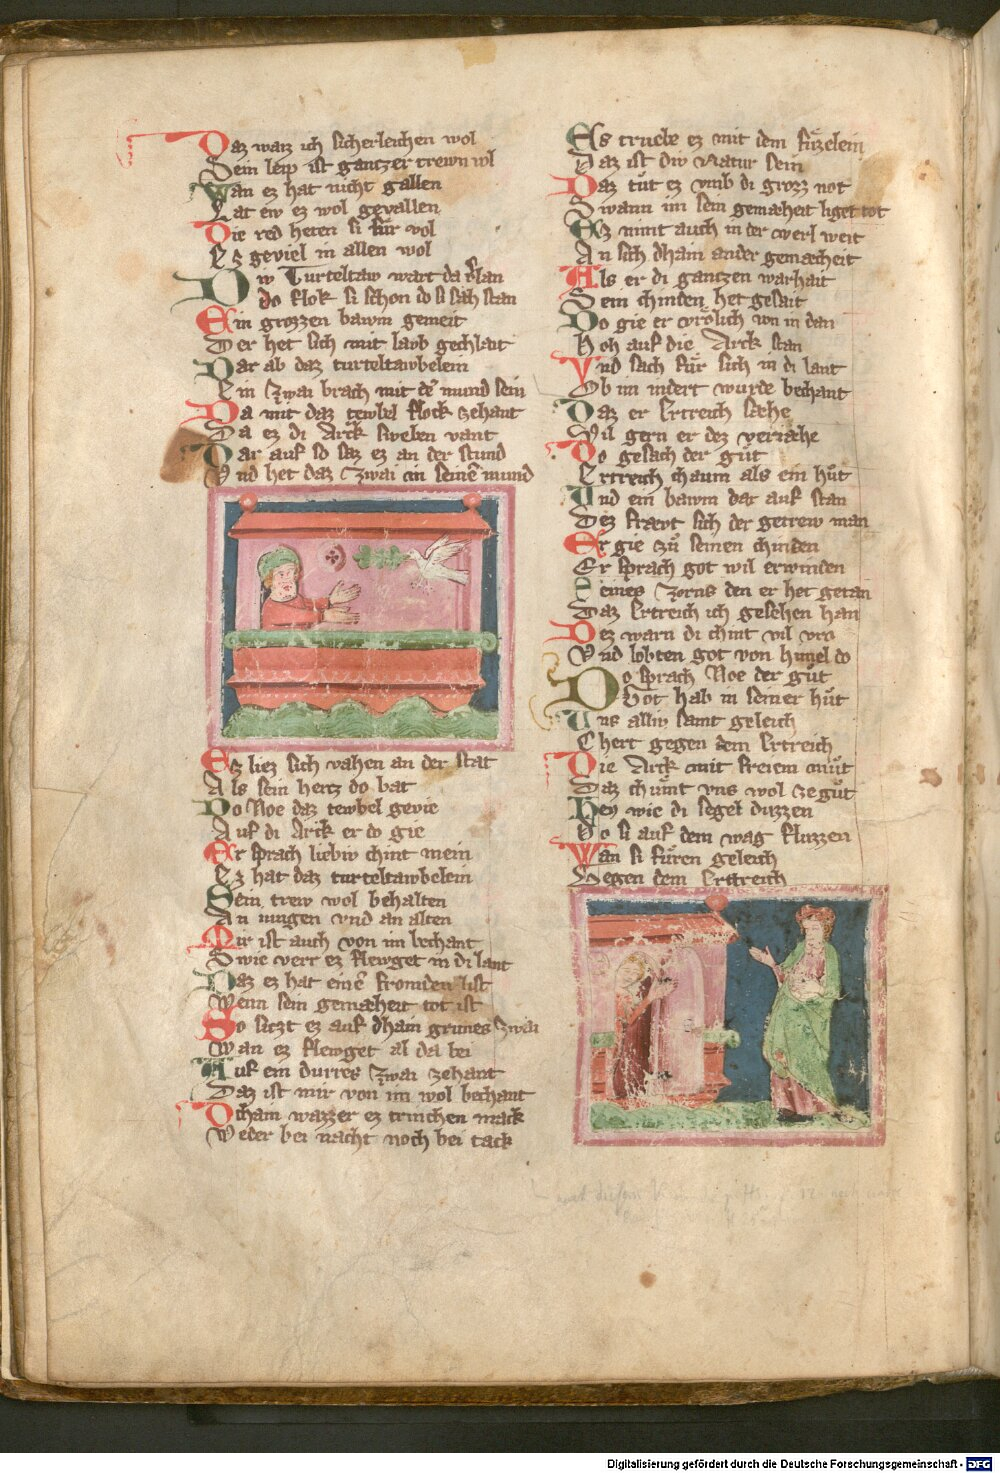 Daz waiz ich sicherleichen wol
Sein leip ist gantzer trewn vol
Wan ez hat nicht gallen
Lat ew ez wol gevallen
Die red heten si für vol
Ez geviel in allen wol
Div Turteltaw wart da v'lan
do flok si schon do si sah stan
Ein grozzen bawm gemeit
Der het sich mit lavb gechlait
Dar ab daz turteltawbelein
Ein zwai brach mit dē mund sein
Da mit daz tewbel flock zehant
Da ez di Arck sweben vant
Dar auf so saz ez an der stund
Vnd het daz zwai in seinē mund
Ez liez sich vahen an der stat
Als sein hertz do bat
Do Noe daz tewbel gevie
Auf di Arck er do gie
Er sprach liebiv chint mein
Ez hat daz turteltawbelein
Sein trew wol behalten
An iungen vnd an alten
Mir ist auch von im bechant
Swie verr ez flewget in di lant
Daz ez hat einē fromden list
Wenn sein gemæheit tot ist
So sitzt ez auf dhain grunes zwai
Wan ez flewget al da bei
Auf ein durres zwai zehant
Daz ist mir von im wol bechant
Dchain wazzer ez trinchen mack
Weder bei nacht noch bei tack
Es truebe ez mit dem füzlein
Daz ist div Natur sein
Daz tüt ez vmb di grozz not
Swann im sein gemæheit liget tot
Ez nimt auch in der werl weit
An sich dhain ander gemæcheit
Als er di gantzen warhait
Sein chinden het gesait
Do gie er vrölich von in dan
Hoh auf die Arck stan
Vnd sach für sich in di lant
Ob im indert wurde bechant
Daz er Ertreich sæhe
Vil gern er dez veriæhe
Do gesach der güt
Ertreich chaum als ein hüt
Vnd ein bawm dar auf stan
Dez frævt sich der getrew man
Er gie zů seinen chinden
Er sprach got wil erwinden
Seines zorns den er het getan
Daz Ertreich ich gesehen han
Dez warn di chint vil vro
Vnd lobten got von himel do
Do sprach Noe der güt
Got hab in seiner hüt
Uns alliv samt geleich
Chert gegen dem Ertreich
Die Arck mit freiem müt
Daz chümt vns wol ze güt
Hey wie di segel duzzen
Do si auf dem wag fluzzen
Wan si füren geleich
Gegen dem Ertreich
Digitalisierung gefördert durch die Deutsche Forschungsgemeinschaft - DFG